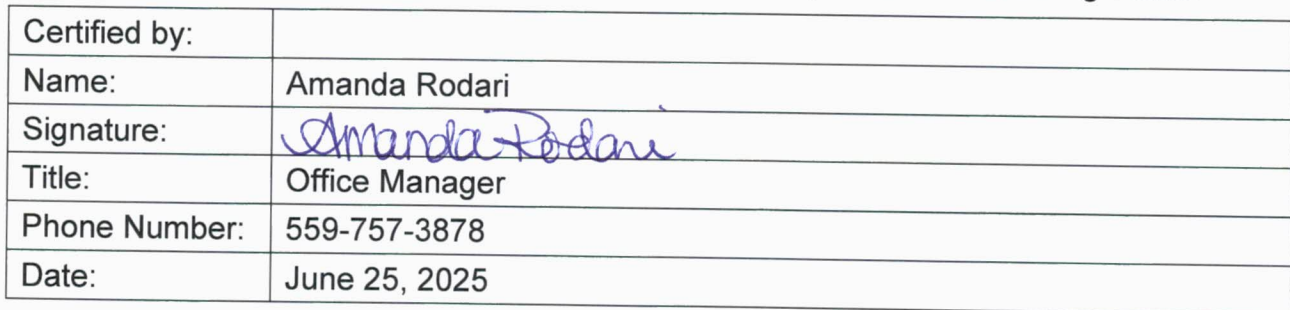 Certified by:
Name: Amanda Rodari
Signature: Amanda Rodari
Title: Office Manager
Phone Number: 559-757-3878
Date: June 25, 2025